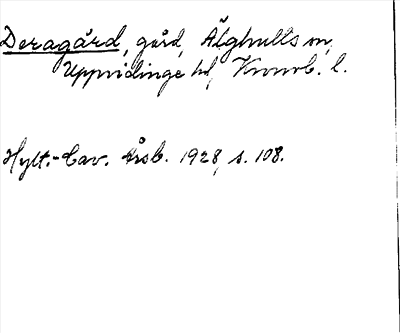 Deragård, gård, Älghults sn,
Uppvidinge hd, Kronob. l.
Hylt.-Cav. Årsb. 1928, s. 108.